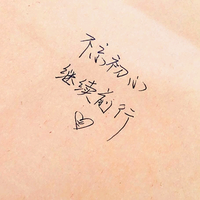 不忘初心
继续前行